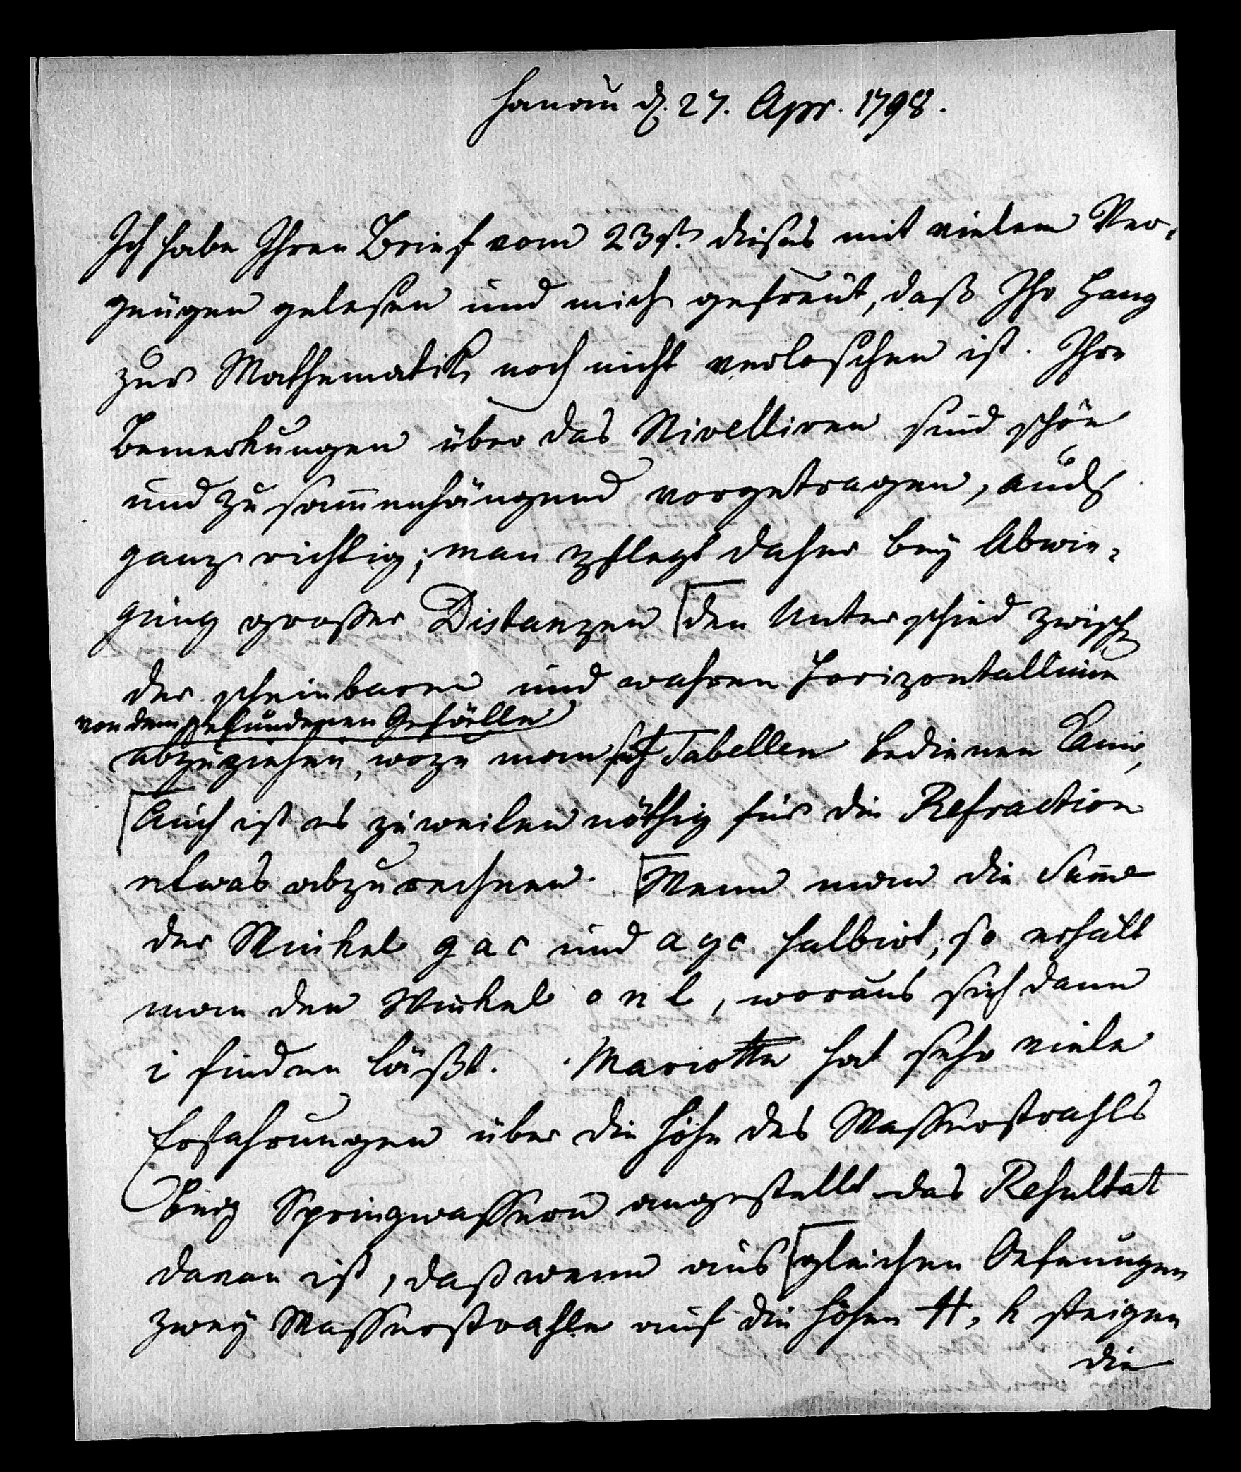 Hanau d. 27. Apr. 1798.
Ich habe Ihren Brief vom 23st. dieses mit vielem Ver-
gnügen gelesen und mich gefreut, daß Ihr Hang
zur Mathematik noch nicht verloschen ist. Ihre
Bemerkungen über das Nivelliren sind schön
und zusam̄enhängend vorgetragen, auch
ganz richtig; man pflegt daher bey Abwie-
gung grosser Distanzen [den Unterschied zwisch
der scheinbaren und wahren Horizontallinie
von dem gefundenen Gefälle
abzuziehen, wozu man sich Tabellen bedienen kann,
[Auch ist es zuweilen nöthig für die Refraction
etwas abzurechnen. [Wenn man die Sum̄e
der Winkel g a c und a g c halbirt, so erhält
man den Winkel o n l, woraus sich dann
i finden läßt. Mariotte hat sehr viele
Erfahrungen über die Höhe des Wasserstrahls
bey Springwassern angestellt das Resultat
davon ist, daß wenn aus [gleichen Oefnungen
zwey Wasserstrahle auf die Höhen H, h steigen
die